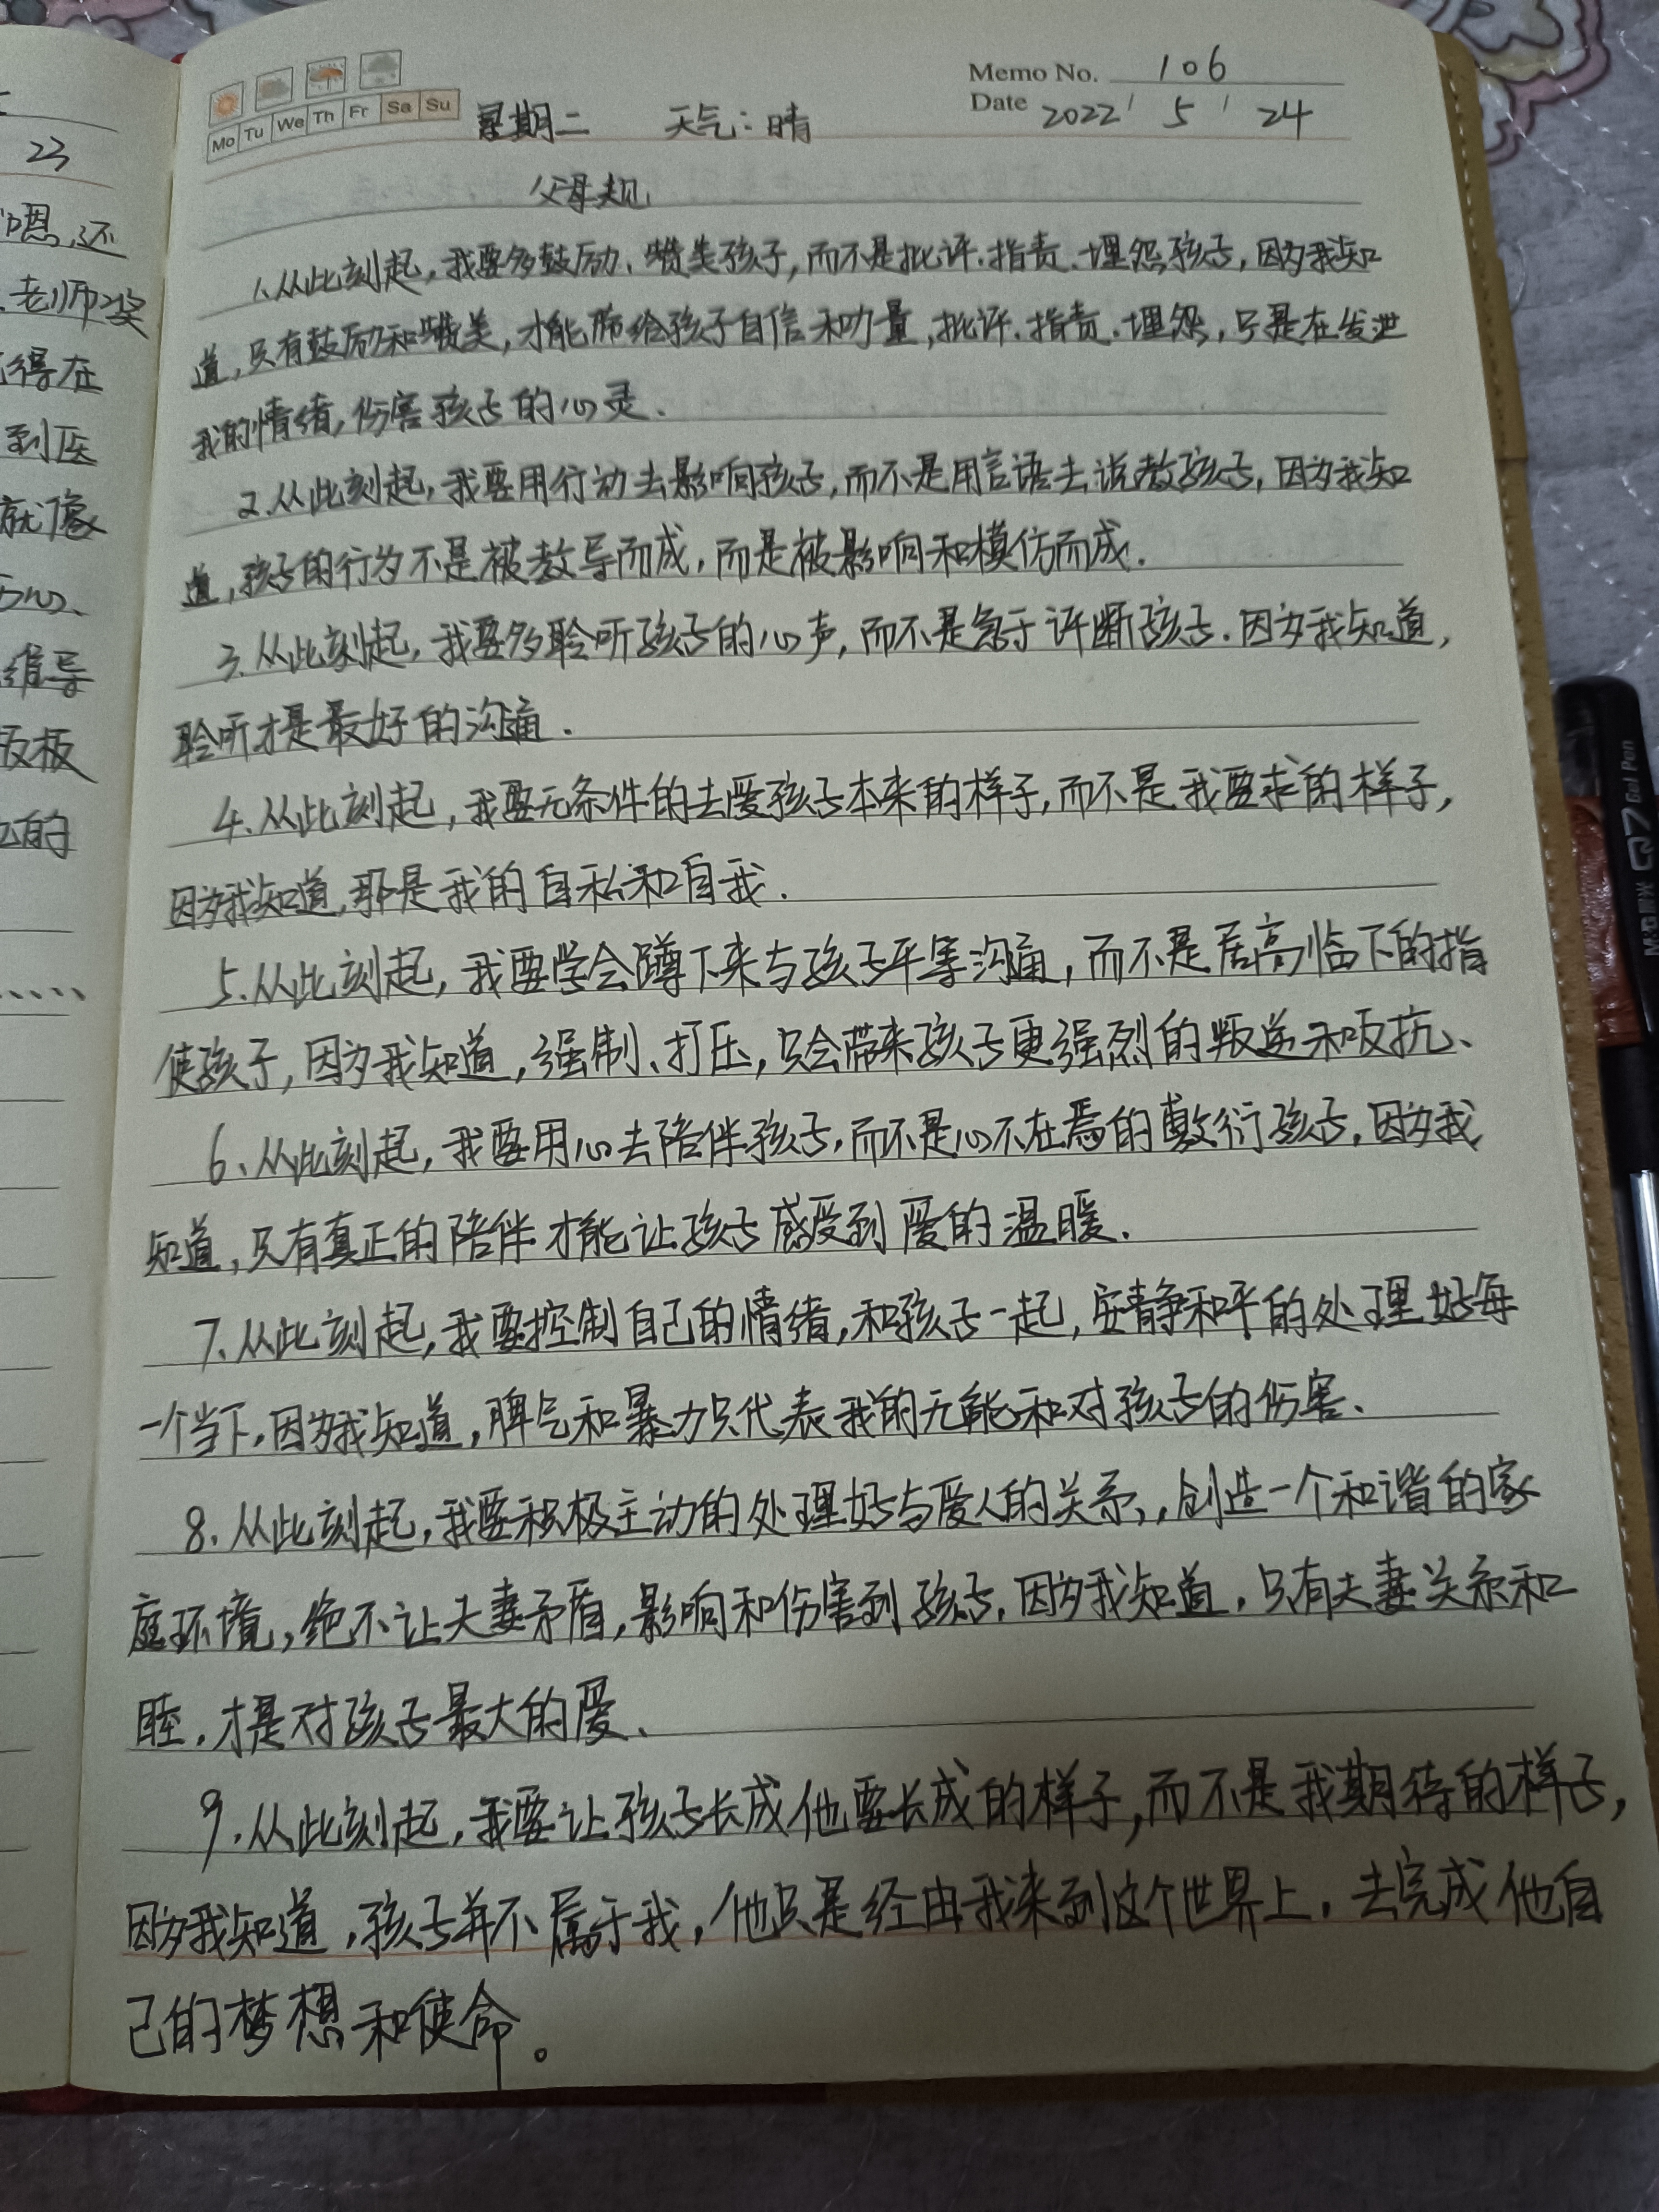 Memo No. 106
Mo Tu We Th Fr Sa Su 星期二 天气:晴 Date 2022/5/24
父母规
1、从此刻起,我要多鼓励、赞美孩子,而不是批评.指责.埋怨孩子,因为我知
道,只有鼓励和赞美,才能带给孩子自信和力量,批评.指责.埋怨,只是在发泄
我的情绪,伤害孩子的心灵.
2.从此刻起,我要用行动去影响孩子,而不是用言语去说教孩子,因为我知
道,孩子的行为不是被教导而成,而是被影响和模仿而成.
3.从此刻起,我要多聆听孩子的心声,而不是急于评断孩子.因为我知道,
聆听才是最好的沟通.
4.从此刻起,我要无条件的去爱孩子本来的样子,而不是我要求的样子,
因为我知道,那是我的自私和自我.
5.从此刻起,我要学会蹲下来与孩子平等沟通,而不是居高临下的指
使孩子,因为我知道,强制、打压,只会带来孩子更强烈的叛逆和反抗、
6、从此刻起,我要用心去陪伴孩子,而不是心不在焉的敷衍孩子,因为我
知道,只有真正的陪伴才能让孩子感受到爱的温暖.
7、从此刻起,我要控制自己的情绪,和孩子一起,安静和平的处理好每
一个当下,因为我知道,脾气和暴力只代表我的无能和对孩子的伤害、
8、从此刻起,我要积极主动的处理好与爱人的关系,,创造一个和谐的家
庭环境,绝不让夫妻矛盾,影响和伤害到孩子,因为我知道,只有夫妻关系和
睦,才是对孩子最大的爱、
9.从此刻起,我要让孩子长成他要长成的样子,而不是我期待的样子,
因为我知道,孩子并不属于我,他只是经由我来到这个世界上,去完成他自
己的梦想和使命。
23
嗯,还
老师奖
得在
到医
就像
维导
板
的
M&G 晨光 Q7 Gel Pen